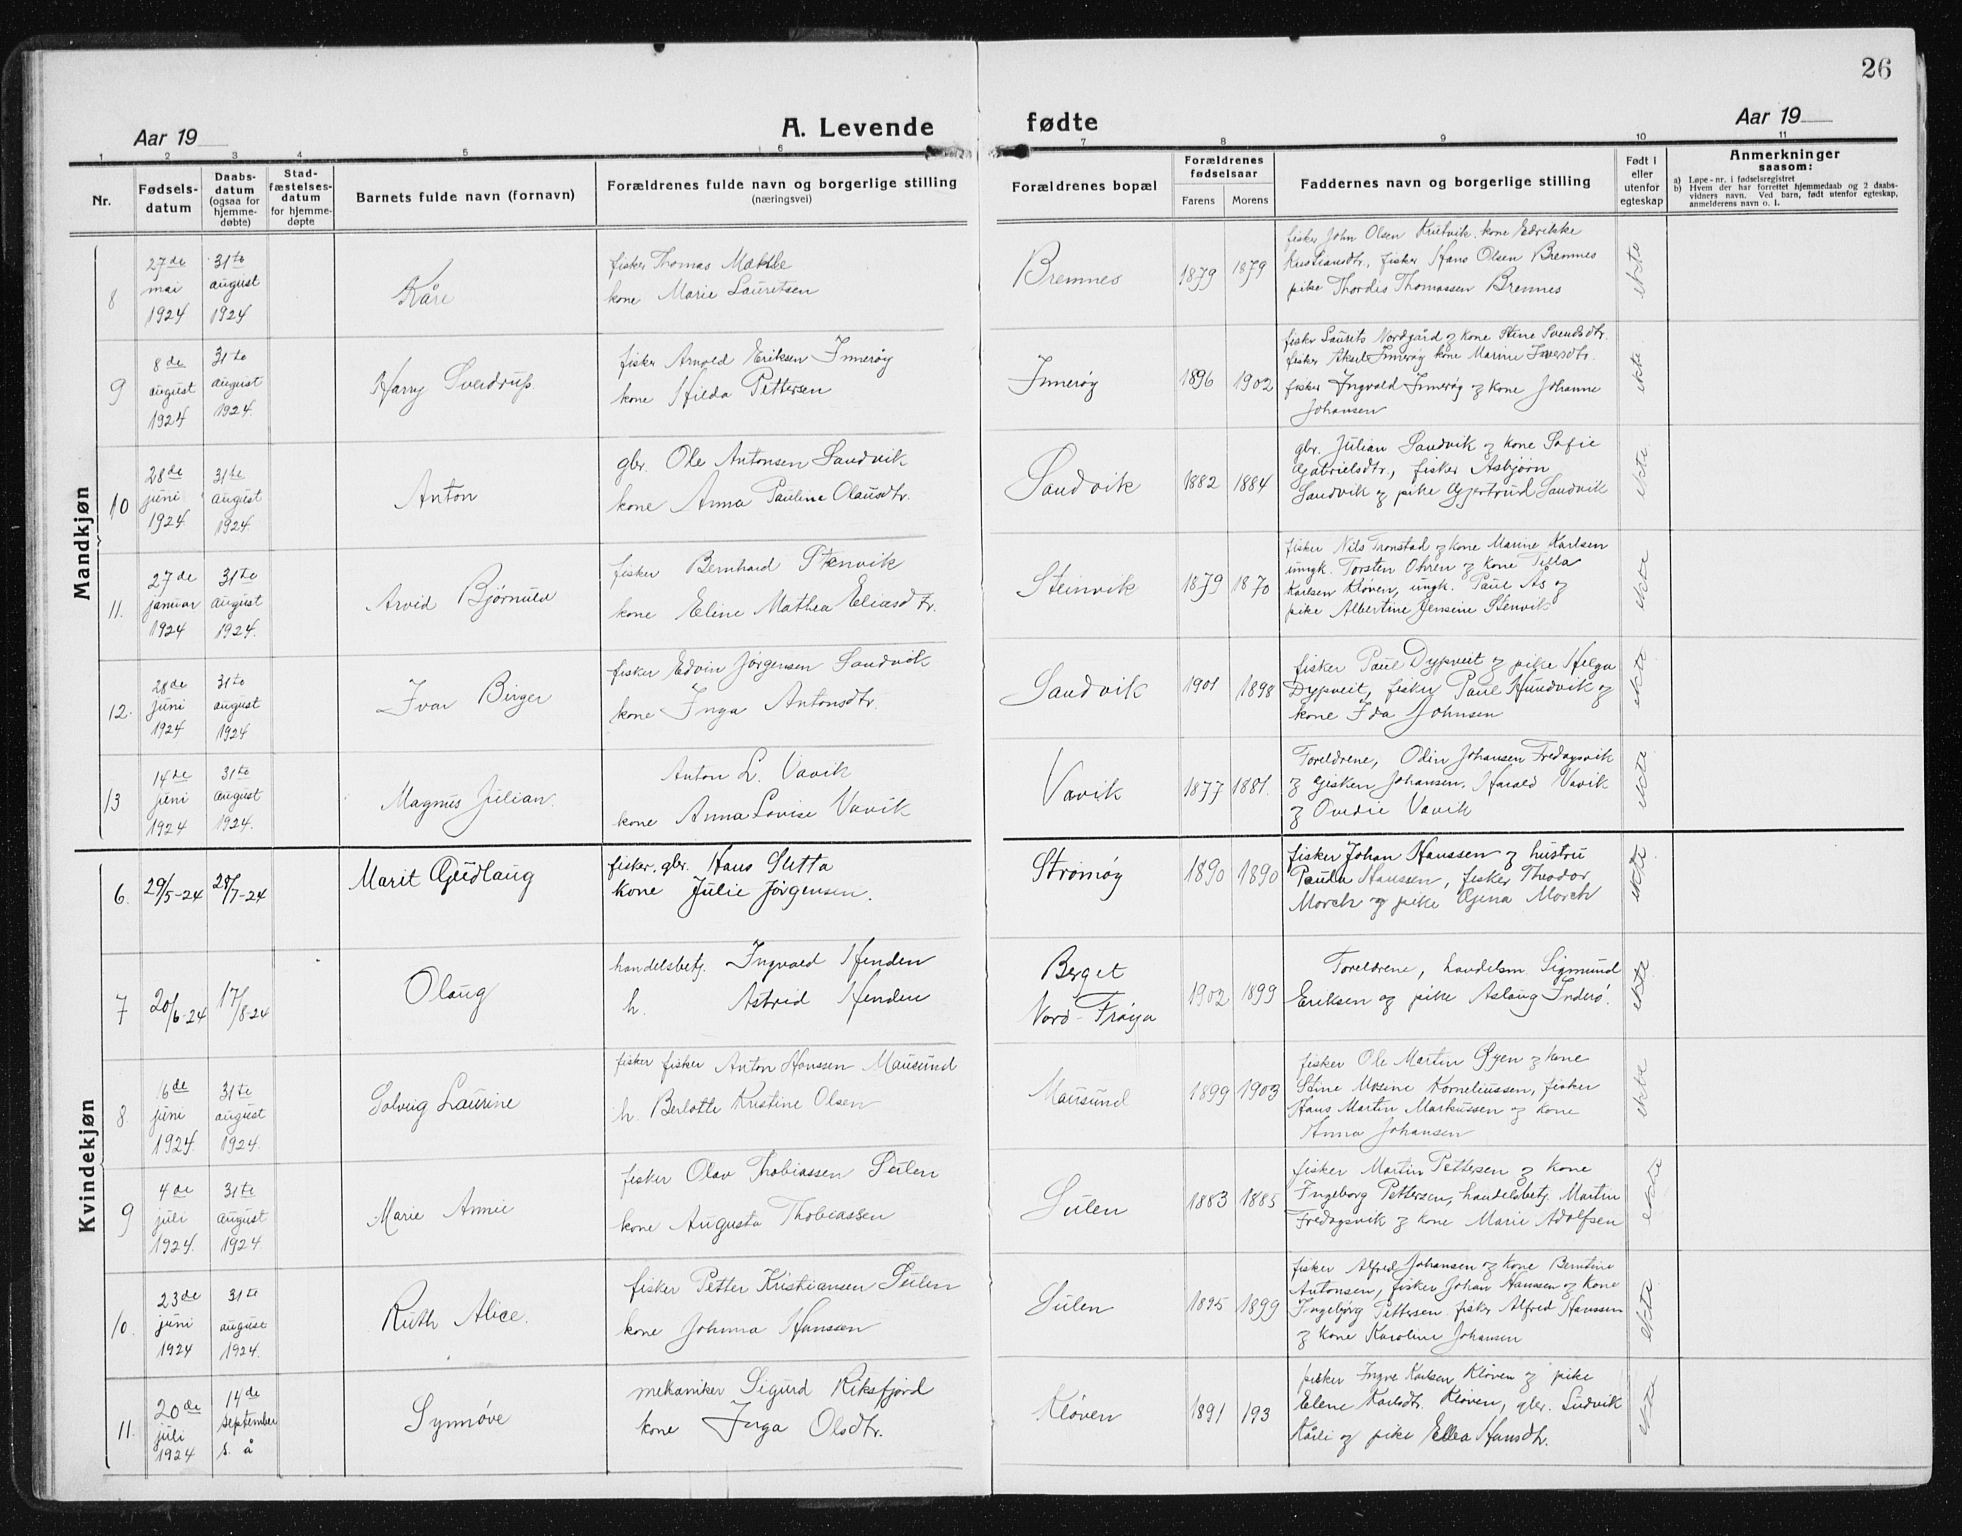 26
Aar 19
A. Levende
fødte
Aar 19
1 2 3 4 5 6 7 8 9 10 11
Nr.
Fødsels-
datum
Daabs-
datum
(ogsaa for
hjemme-
døbte)
Stad-
fæstelses-
datum
for hjemme-
døpte
Barnets fulde navn (fornavn)
Forældrenes fulde navn og borgerlige stilling
(næringsvei)
Forældrenes bopæl
Forældrenes
fødselsaar
Farens Morens
Faddernes navn og borgerlige stilling
Født i
eller
utenfor
egteskap
Anmerkninger
saasom:
a) Løpe-nr. i fødselsregistret
b) Hvem der har forrettet hjemmedaab og 2 daabs-
vidners navn. Ved barn, født utenfor egteskap,
anmelderens navn o. l.
Mandkjøn
8
27de
mai
1924
31te
august
1924
Kåre
fisker Thomas
kone Marie Lauretsen
Bremnes
1879 1879
fisker John Olsen kone
Kristiansdtr, fisker Hans Olsen Bremnes
pike Thordis Thomassen Bremnes
ekte
9
8de
august
1924
31te
august
1924.
Harry Sverdrup.
fisker Arnold Eriksen Innerøy
kone Hilda Pettersen
Innerøy
1896 1902
fisker Laurits Nordgård og kone Stine Svendsdtr.
fisker Aksel Innerøy kone Marine Iversdtr.
fisker Ingvald Innerøy og kone Johanne
Johansen
ekte
10
28de
juni
1924
31te
august
1924
Anton
gbr. Ole Antonsen Sandvik
kone Anna Pauline Olausdtr.
Sandvik
1882 1884
gbr. Julian Sandvik og kone Sofie
Gabrielsdtr., fisker Asbjørn
Sandvik og pike Gjertrud Sandvik
ekte
11.
27de
januar
1924
31te
august
1924.
Arvid Bjørnulv
fisker Bernhard Stenvik
kone Eline Mathea Eliasdtr.
Steinvik
1879 1870
fisker Nils Tronstad og kone Marine Karlsen
ungk. Torsten Ohren og kone Tilla
Karlsen Kløven, ungk. Paul Ås og
pike Albertine Jensine Stenvik
ekte
12.
28de
juni
1924
31te
august
1924
Ivar Birger
fisker Edvin Jørgensen Sandvik
kone Inga Antonsdtr.
Sandvik
1901 1898
fisker Paul Dypveit og pike Helga
Dypveit, fisker Paul Hundvik og
kone Ida Johnsen
ekte
13
14de
juni
1924
31te
august
1924.
Magnus Julian.
Anton L. Vavik
kone Anna Lovise Vavik
Vavik
1877 1881.
Foreldrene, Odin Johansen Fredagsvik
og Gisken Johansen, Harald Vavik
og Ovedie Vavik
ekte
Kvindekjøn
6.
29/5-24
28/7-24
Marit Gudlaug
fisker, gbr. Hans Sletta
kone Julie Jørgensen.
Strømøy
1890 1890
fisker Johan Hanssen og hustru
Paula Hanssen, fisker Theodor
Morch og pike Gjena Morch
ekte
7
20/6-24
17/8-24
Olaug
handelsbetj. Ingvald Henden
h. Astrid Henden
Berget
Nord-Frøya
1902 1899
Foreldrene, handelsm. Sigmund
Eriksen og pike Aslaug Inderö.
ekte
8.
6de
juni
1924.
31te
august
1924.
Solveig Laurine
fisker fisker Anton Hanssen Mausund
h. Berlotte Kristine Olsen
Mausund
1899 1903
fisker Ole Martin Øyen og kone
Stine Mosine Korneliussen, fisker
Hans Martin Markussen og kone
Anna Johansen
ekte
9
4de
juli
1924.
31te
august
1924
Marie Annie
fisker Olav Thobiassen Sulen
kone Augusta Thobiassen
Sulen
1883 1885
fisker Martin Pettersen og kone
Ingeborg Pettersen, handelsbetj. Martin
Fredagsvik og kone Marie Adolfsen
ekte
10.
23de
juni
1924
31te
august
1924.
Ruth Alice.
fisker Petter Kristiansen Sulen
kone Johnna Hanssen
Sulen
1895 1899
fisker Alfred Johansen og kone Berntine
Antonsen, fisker Johan Hanssen og kone
Ingebjørg Pettersen fisker Alfred Hanssen
og kone Karoline Johansen
ekte
11.
20de
juli
1924
14de
september
s. å
Synnøve
mekaniker Sigurd Riksfjord
kone Inga Olsdtr.
Kløven
1891 193
fisker Ingve Karlsen Kløven og pike
Elene Karlsdtr. Kløven, gbr. Ludvik
Kårli og pike Ella Hansdtr.
ekte